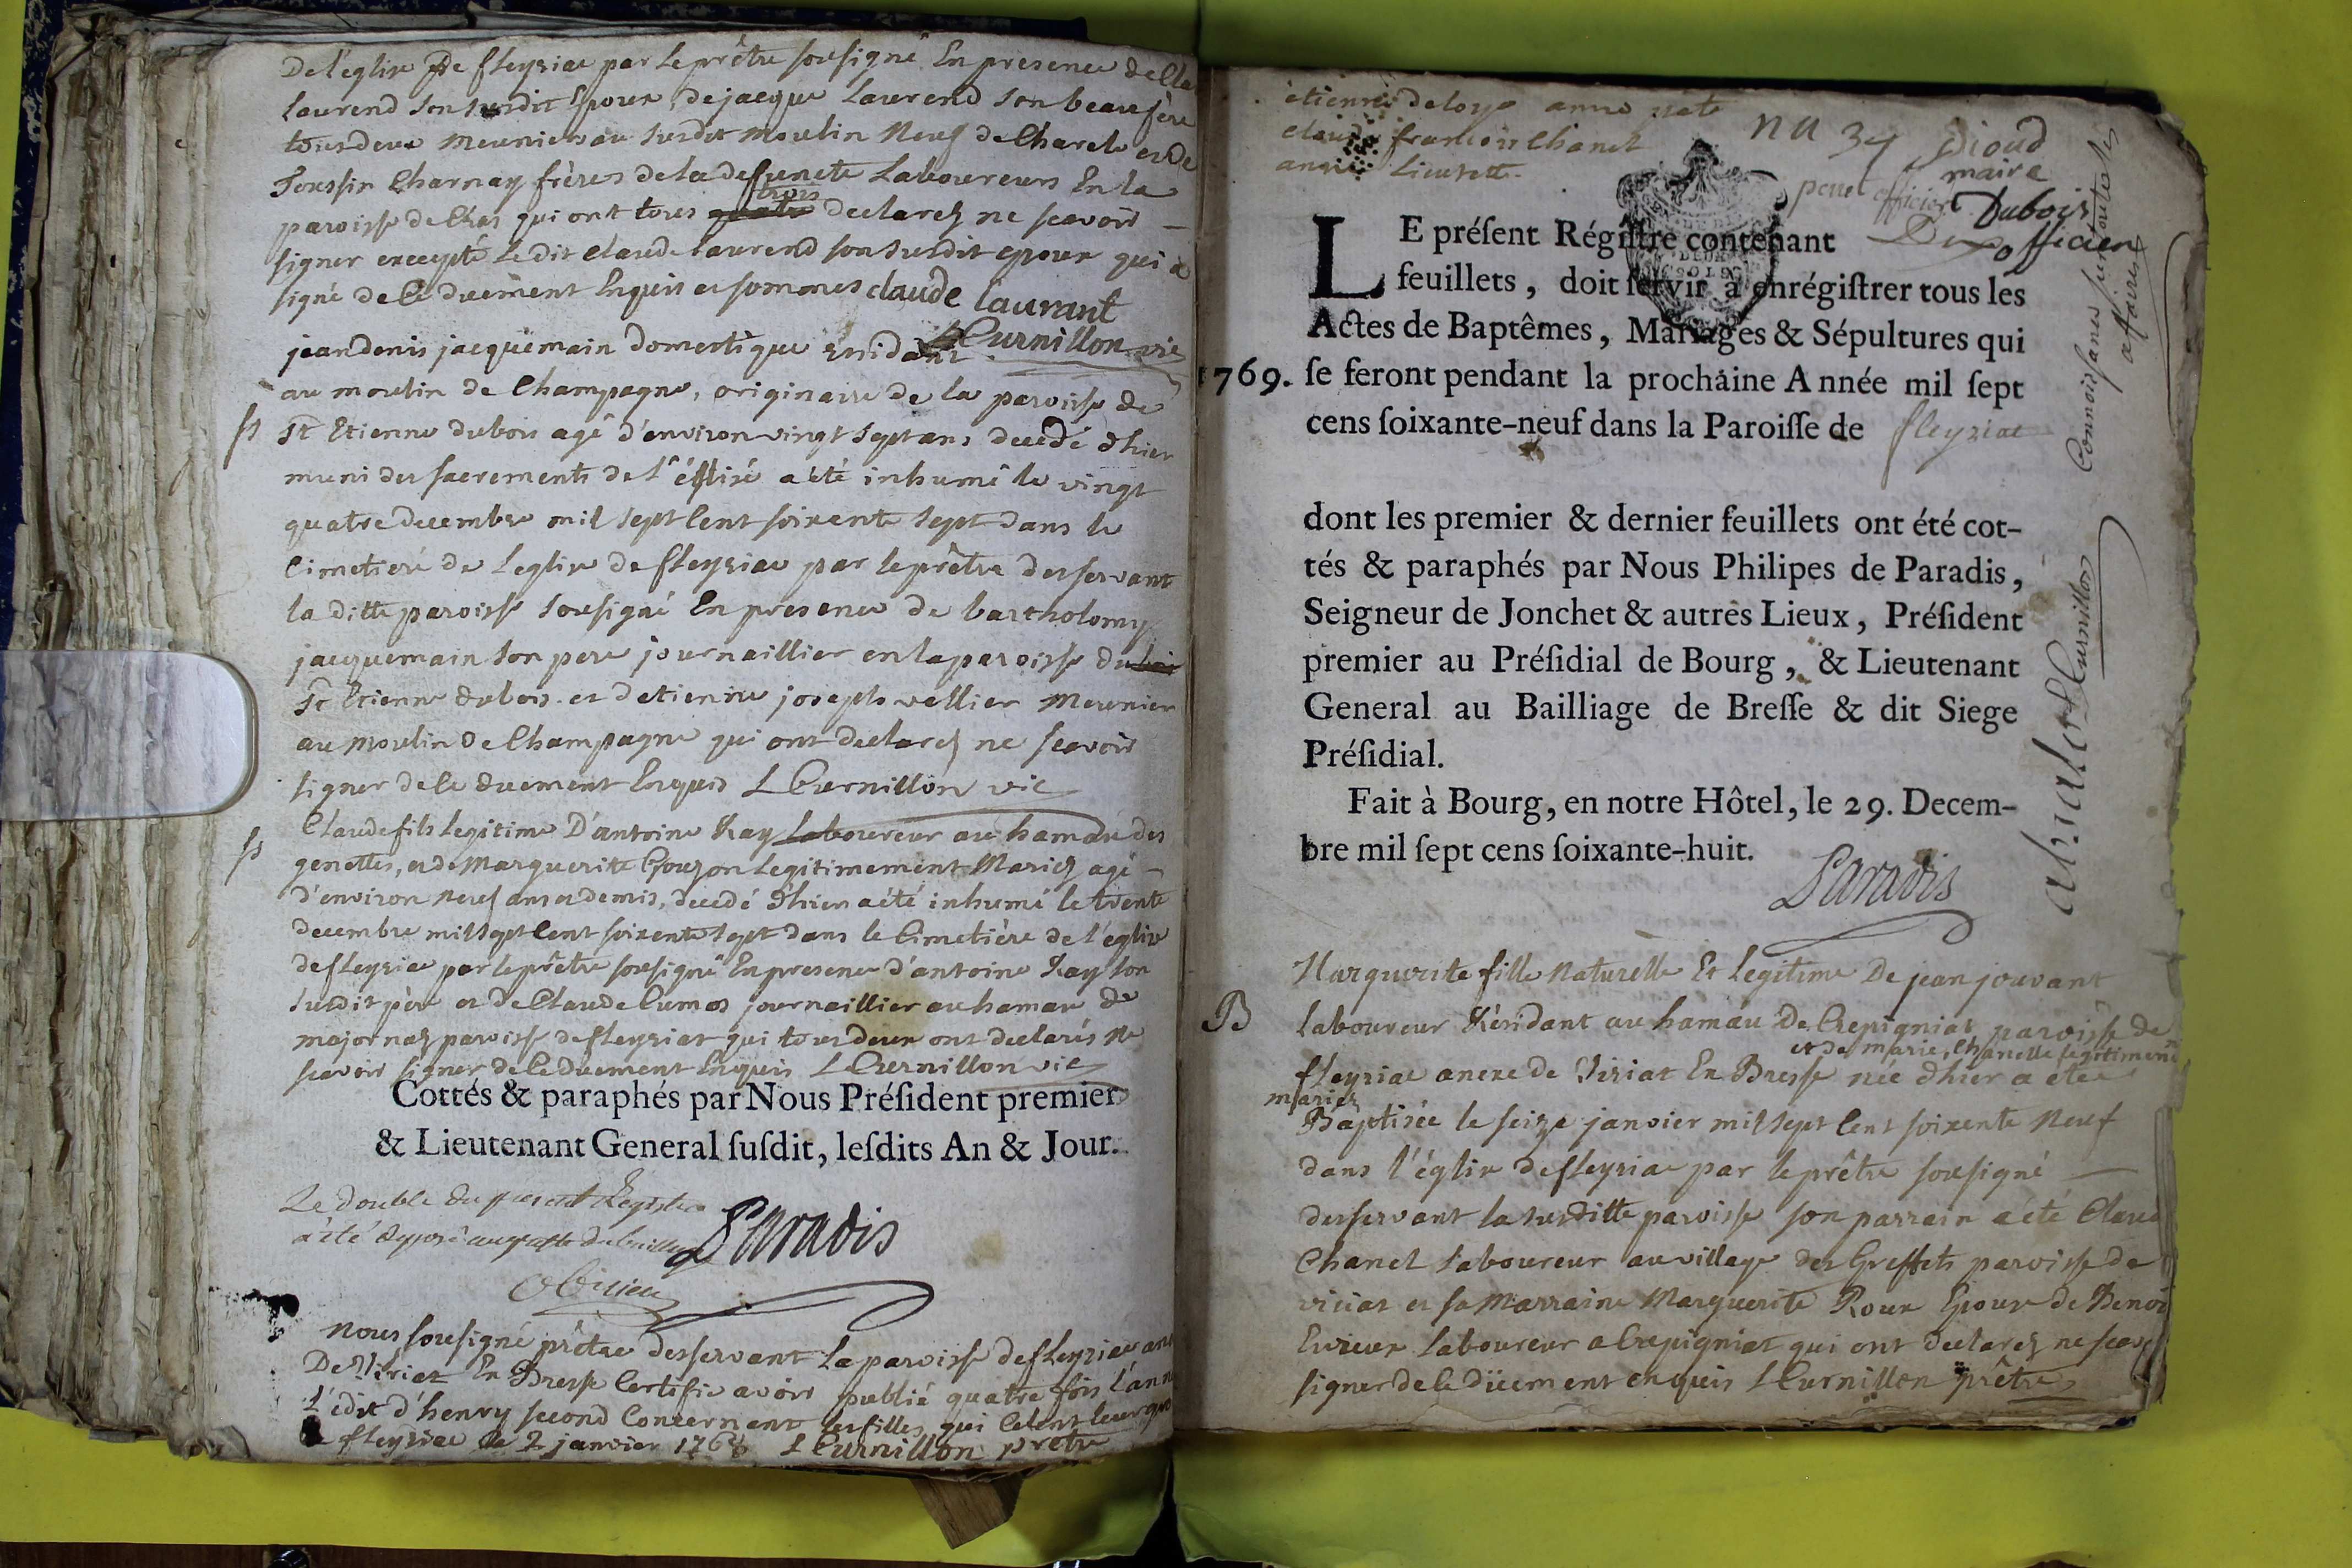 De l'eglise de fleyriac par le prêtre sousigné En presence de Cl
laurend son susdit Epoux, de jacque laurend son beaufrère
tous deux meuniers au susdit moulin Neuf de Charele et de
Toussin Charnay frères de la defuncte Laboureurs En la
trois
paroisse de Chas qui ont tous quatre declarez ne scavoir
signer excepté Le dit claude laurend son susdit epoux qui a
signé de ce duement Enquis et sommes claude laurant
LCurnillon vic
jeandenis jacquemain domestique residant
au moulin de Champagne, originaire de la paroisse de
S
St Etienne dubois agé d'environ vingt sept ans decedé d'hier
muni des sacrements de l'église a été inhumé le vingt
quatre decembre mil sept Cent soixente sept dans le
Cimetieré de Leglise de fleyriac par le prêtre desservant
la ditte paroisse sousigné En presence de bartholomy
jacquemain son pere journaillier en la paroisse du bois
St Etienne dubois et detienne joseph vellier Meunier
au moulin de Champagne qui ont declarez ne scavoir
signer de ce duement Enquis LCurnillon vic
S
Claude fils legitime D'antoine Ray Laboureur au hamau des
genettes, et de Marguerite Gouzon Legitimement Mariez agé
d'environ neuf ans et demis, decedé d'hier a été inhumé le trente
decembre mil sept Cent soixente sept dans le Cimetière de l'eglise
de fleyriac par le prêtre sousigné En presence d'antoine Ray son
susdit père et de Claude Cumas journaillier au hamau de
majornaz paroisse de fleyriat qui tous deux ont declarés ne
scavoir signer de ce duement Enquis LCurnillon vic
Cottés & paraphés par Nous Préſident premier
& Lieutenant General ſuſdit, leſdits An & Jour.
Le double du present Registre
a été deposé au greffe du bailliage
Paradis
Nous sousigné prêtre desservant la paroisse de fleyriac
De Viriat En Bresse Certifie avoir publié quatre fois l'ann
l'edit d'henry second Concernant les filles qui Celent leur
a fleyriac le 2 janvier 1768 LCurnillon prêtre
etienne deloye anne
claude francois Chanel
nu 34
Dioud
maire
Dubois
officier
Connoissance sur toutes les
affaires
LE préſent Régiſtre contenant
feuillets, doit ſervir à enrégiſtrer tous les
Actes de Baptêmes, Mariages & Sépultures qui
1769. ſe feront pendant la prochaine Année mil ſept
cens ſoixante-neuf dans la Paroiſſe de fleyriat
dont les premier & dernier feuillets ont été cot-
tés & paraphés par Nous Philipes de Paradis,
Seigneur de Jonchet & autres Lieux, Préſident
premier au Préſidial de Bourg, & Lieutenant
General au Bailliage de Breſſe & dit Siege
Préſidial.
Fait à Bourg, en notre Hôtel, le 29. Decem-
bre mil ſept cens ſoixante-huit.
Paradis
LCurnillon
Marguerite fille Naturelle Et Legitime De jean jouvant
B
laboureur Résidant au hamau De Crepigniat paroisse de
et de marie Chanelle legitimem
fleyriac anexe de Viriat En Bresse née d'hier a etée
mariez
Baptisée le seize janvier mil sept Cent soixente Neuf
dans l'église de fleyriac par le prêtre sousigné
desservant la susditte paroisse son parrain a été Claud
Chanel laboureur au village des Greffets paroisse de
viriat et sa Marraine Marguerite Roux Epouse de Benoi
Envieux laboureur a Crepigniat qui ont declarez ne scav
signer de ce düement enquis LCurnillon prêtre